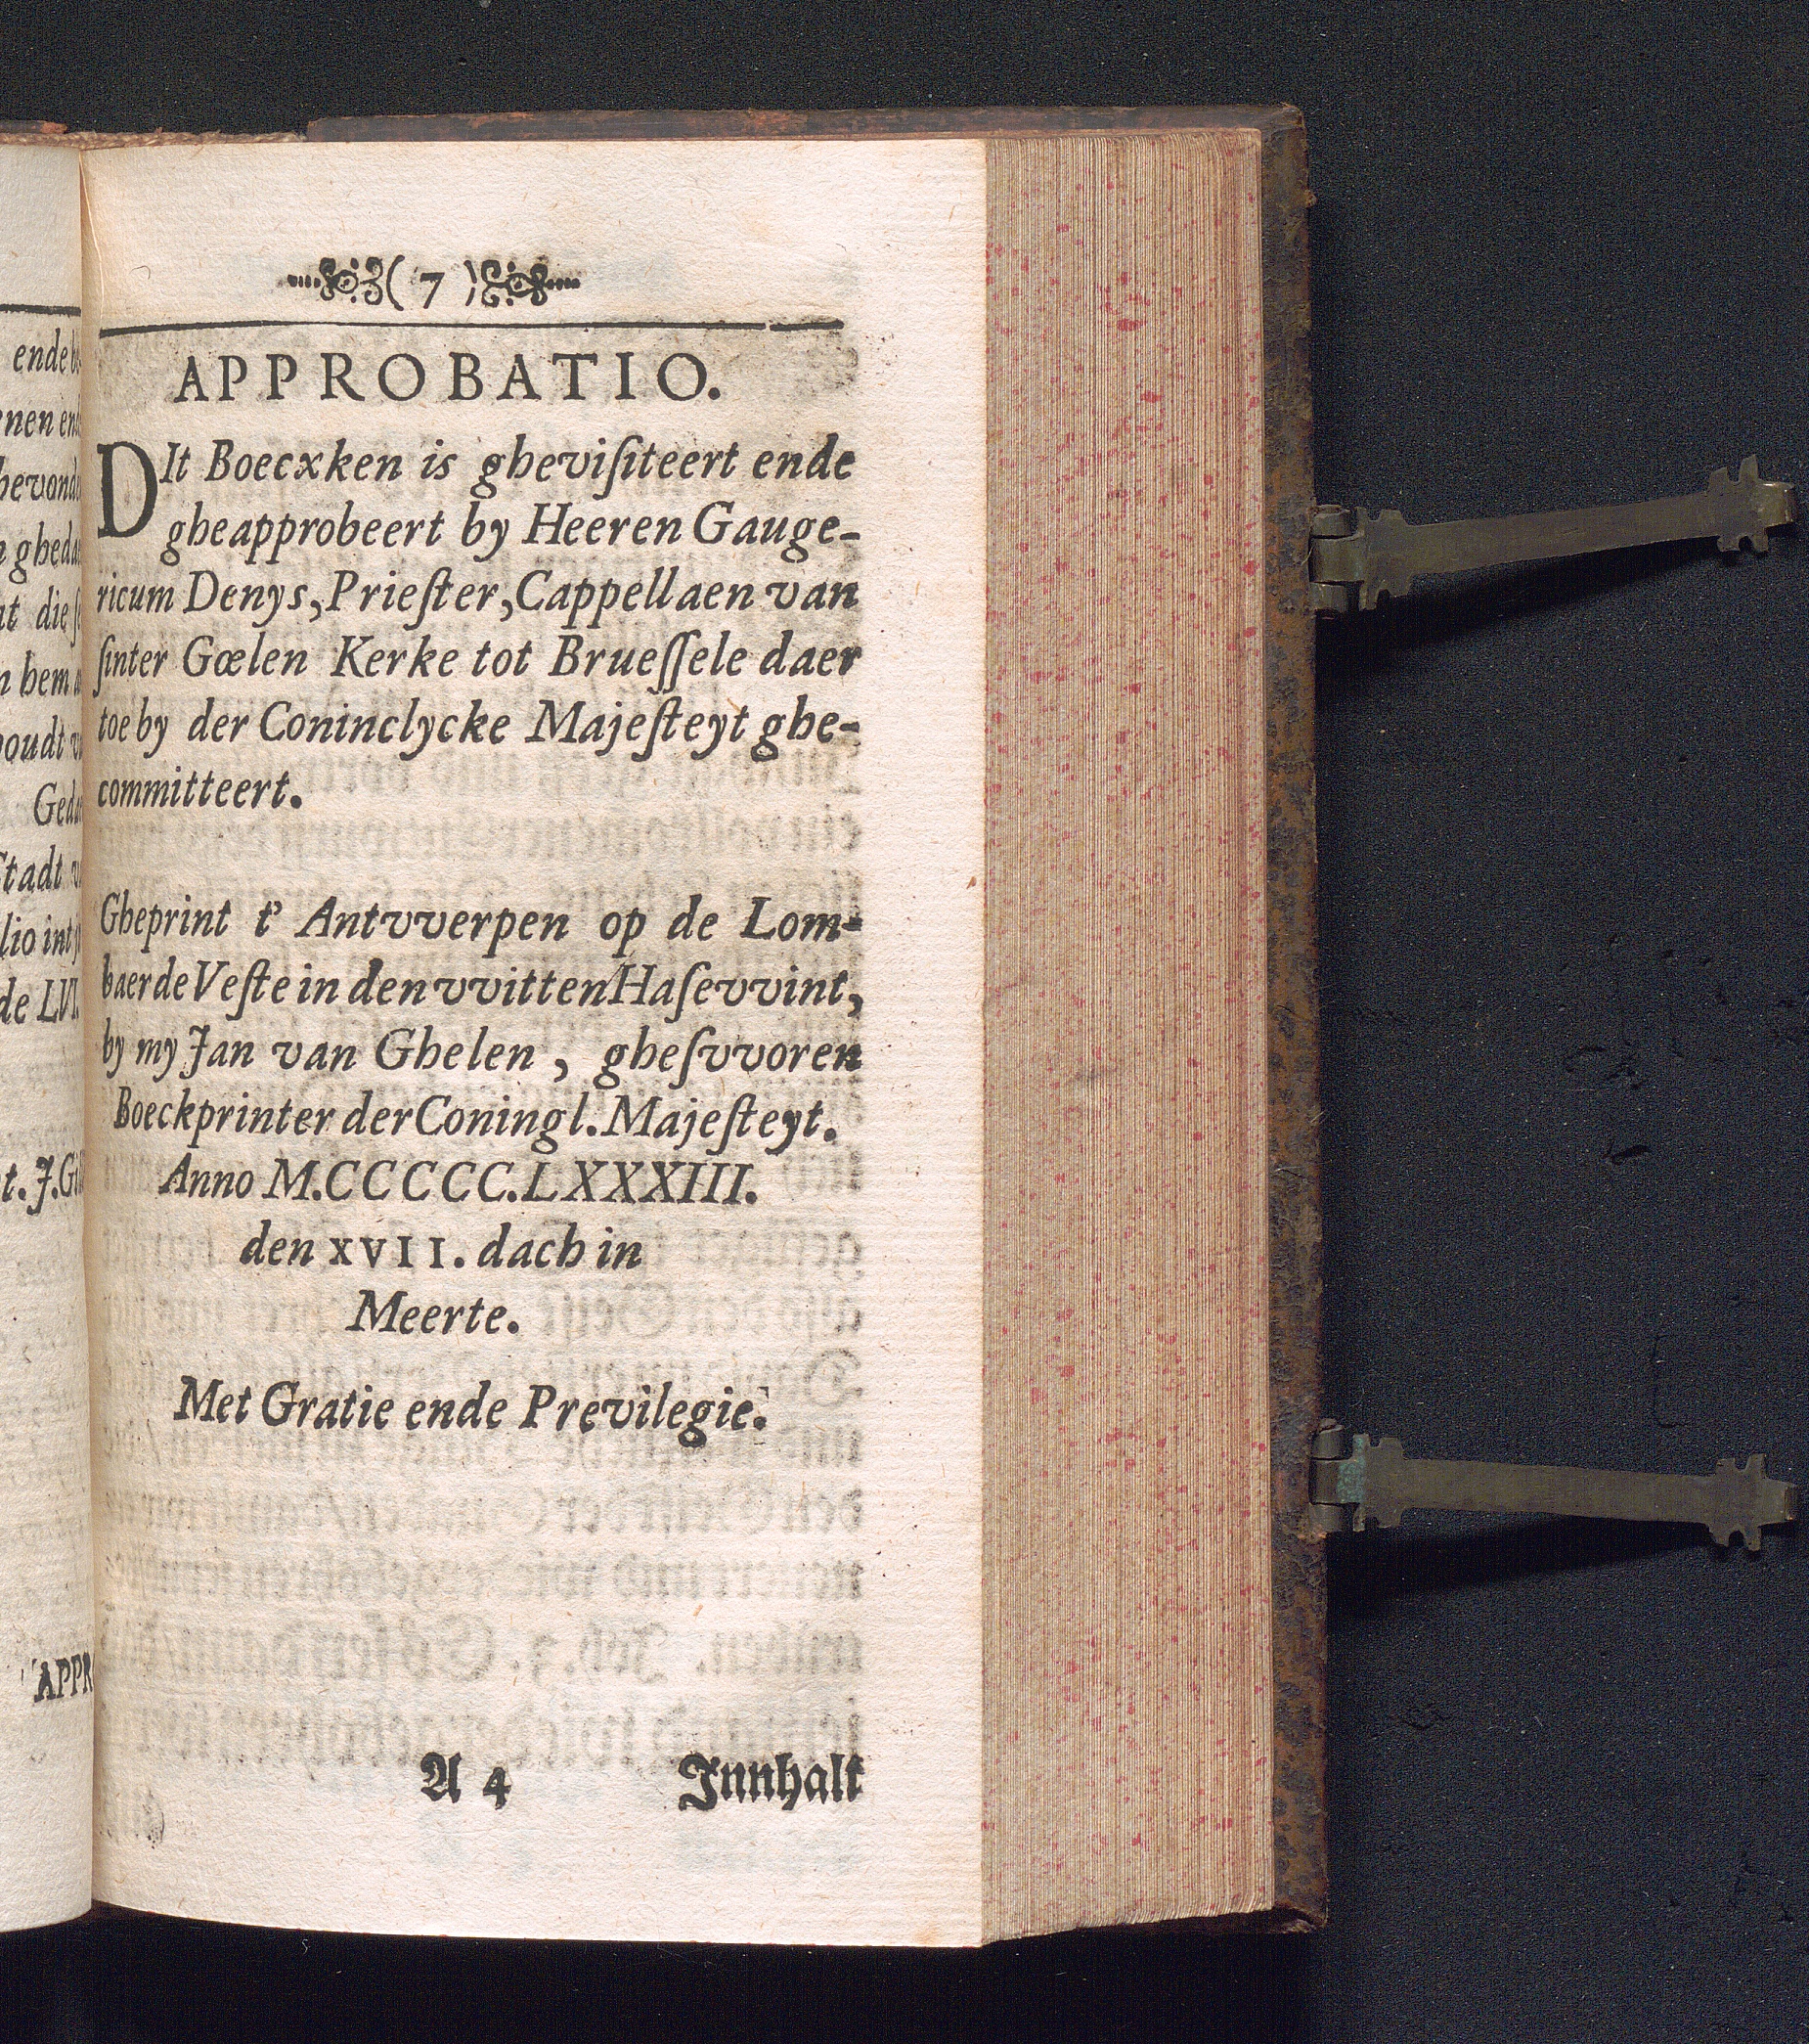 ( 7 )
APPROBATIO.
DIt Boecxken is gheviſiteert ende
gheapprobeert by Heeren Gauge-
ricum Denys, Prieſter, Cappellaen van
ſinter Gœlen Kerke tot Brueſſele daer
toe by der Coninclycke Majeſteyt ghe-
committeert.
Gheprint t' Antvverpen op de Lom-
baerde Veſte in den vvitten Haſevvint,
by my Jan van Ghelen, gheſvvoren
Boeckprinter der Coningl. Majeſteyt.
Anno M.CCCCC.LXXXIII.
den XVII. dach in
Meerte.
Met Gratie ende Previlegie.
A 4 Innhalt